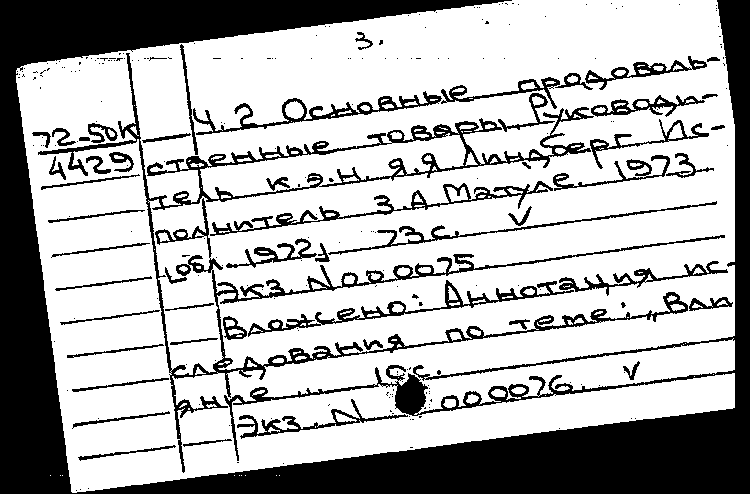 3.
72-50К
4429
Ч. 2. Основные продоволь-
ственные товары. Руководи-
тель к.э.н. Я.Я Линдберг Ис-
полнитель З.А Матуле. 1973
[обл. 1972] 73 с. V
Экз. N 000075.
Вложено: Аннотация ис-
следования по теме: „Вли
яние ... 10 с.
Экз. N 000076. V